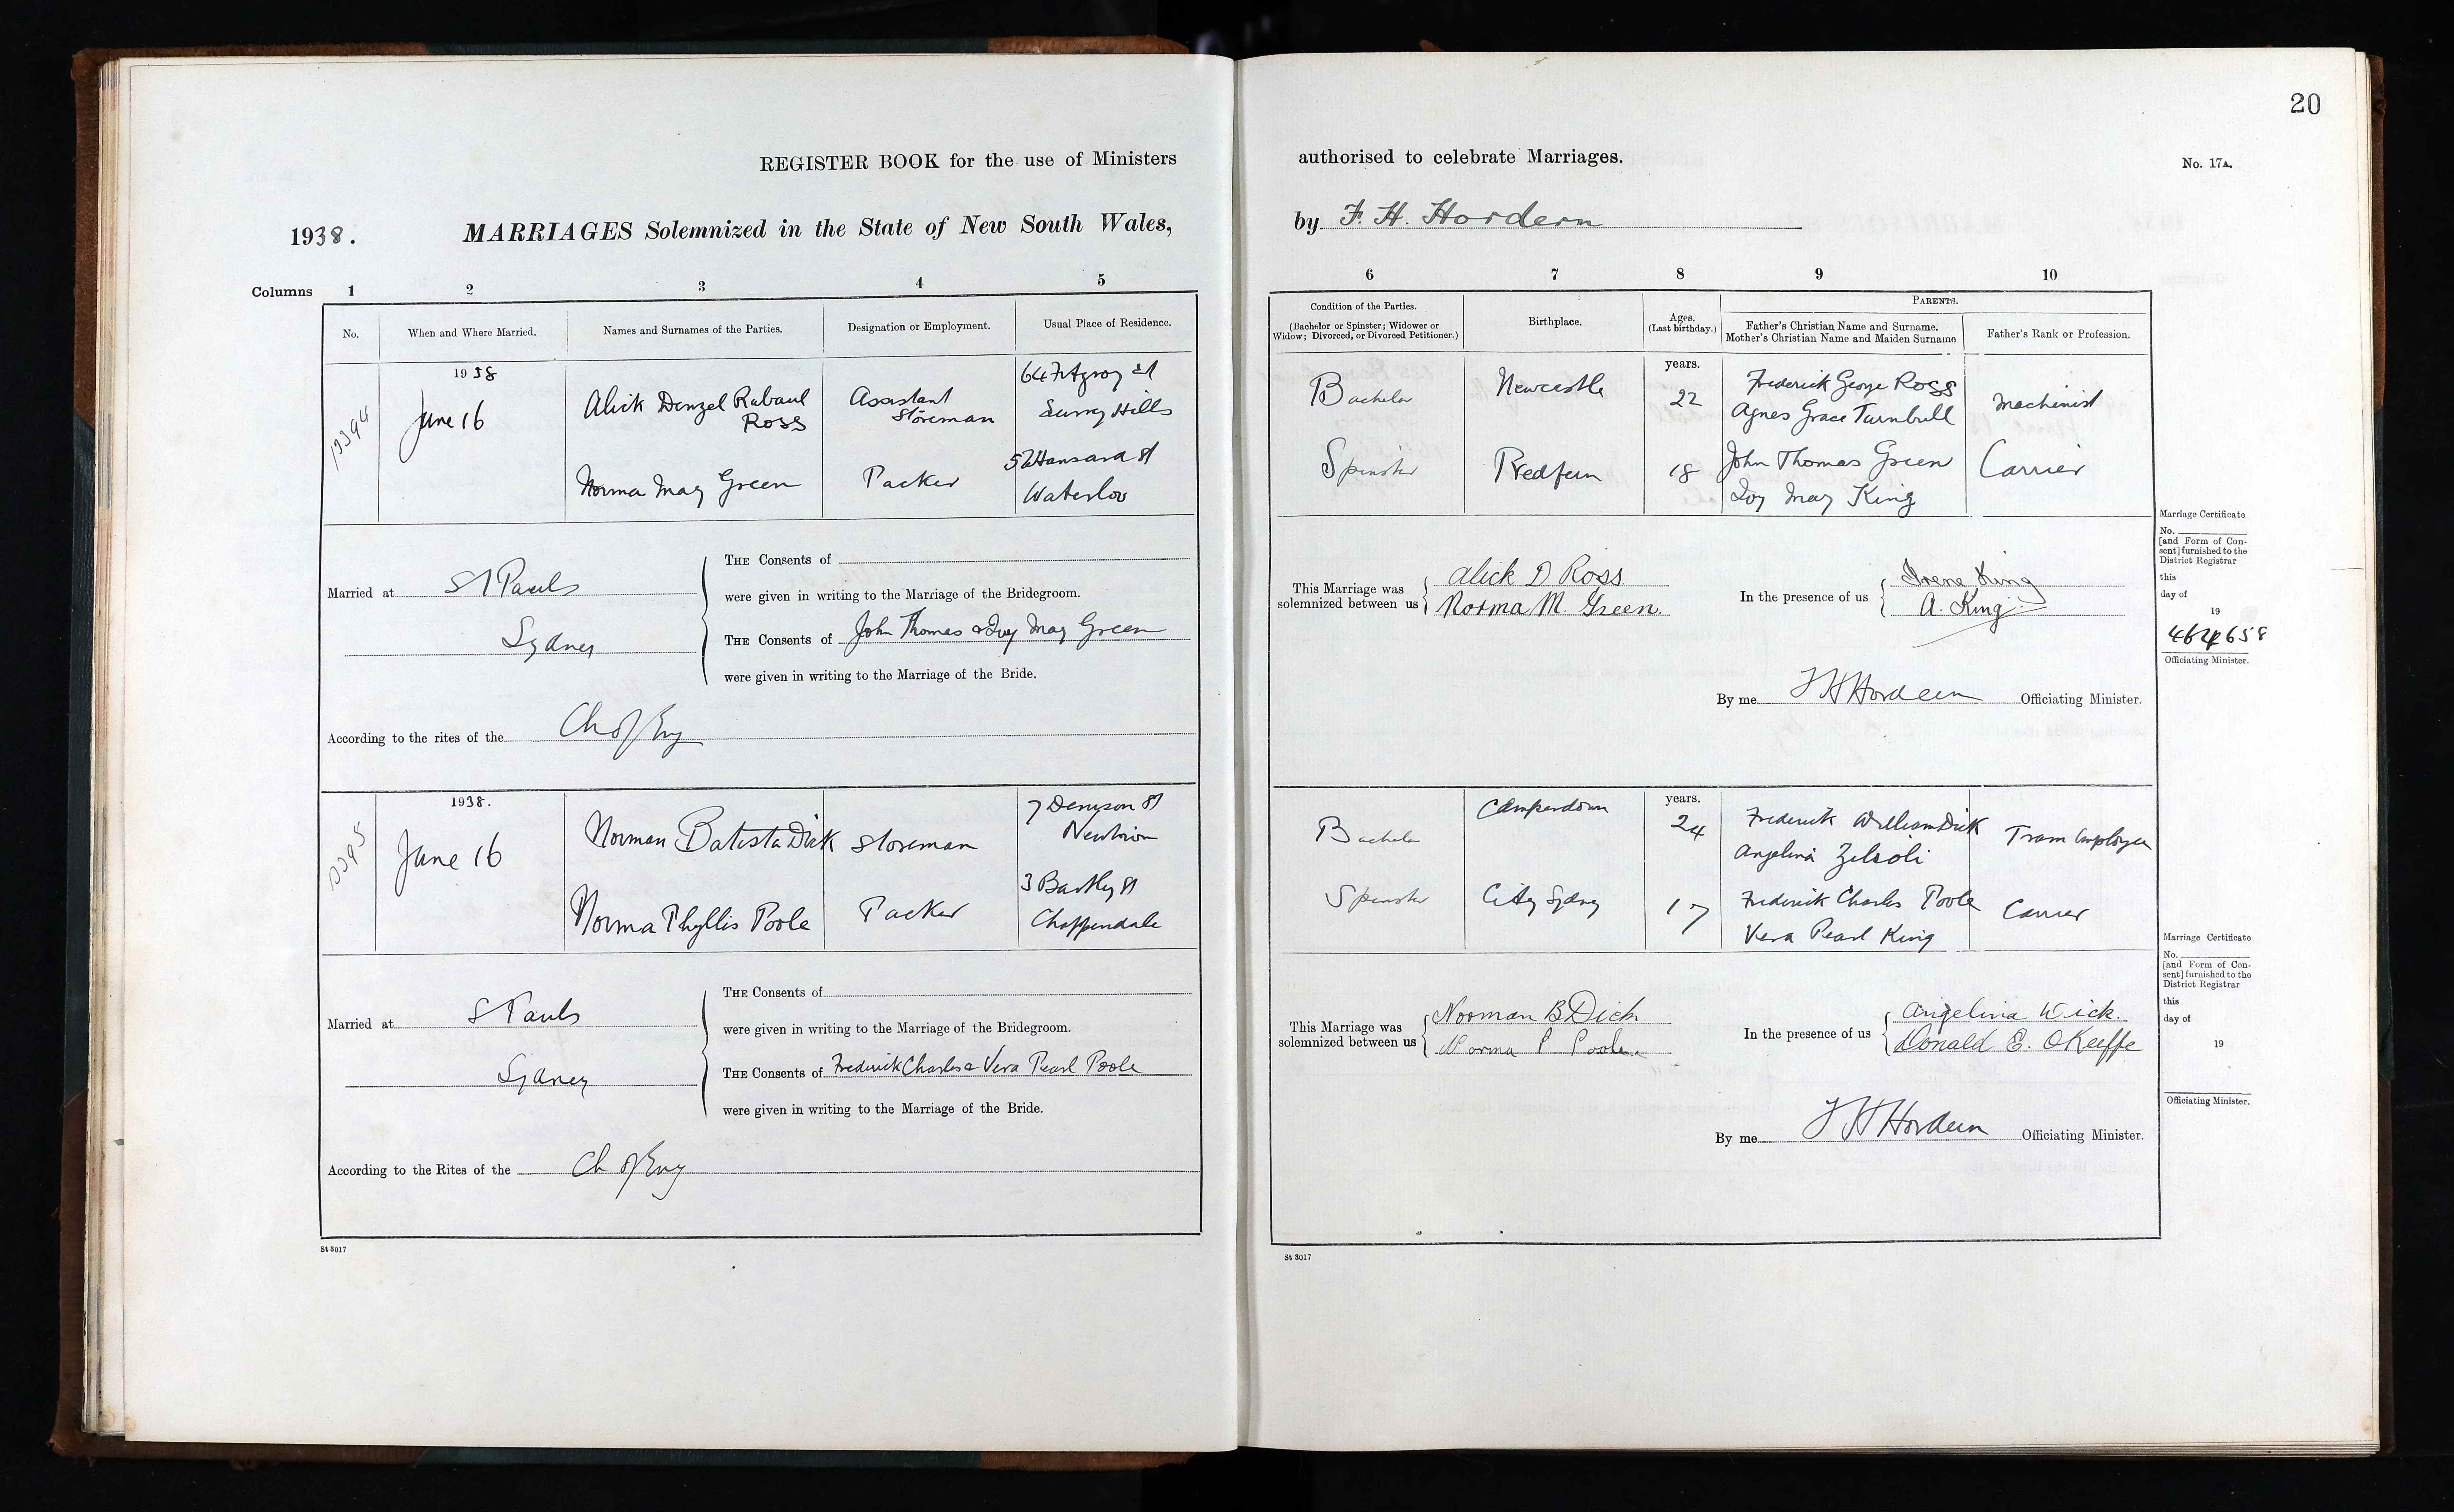 20
REGISTER BOOK for the use of Ministers authorised to celebrate Marriages.
No. 17A.
1938. MARRIAGES Solemnized in the State of New South Wales, by F. H. Hordern
Columns 1 2 3 4 5 6 7 8 9 10
No.
When and Where Married.
Names and Surnames of the Parties.
Designation or Employment.
Usual Place of Residence.
Condition of the Parties.
(Bachelor or Spinster; Widower or
Widow; Divorced, or Divorced Petitioner.)
Birthplace.
Ages.
(Last birthday.)
PARENTS.
Father's Christian Name and Surname.
Mother's Christian Name and Maiden Surname
Father's Rank or Profession.
13394
1938
June 16
Alick Denzel Rabaul
Ross
Assistant
Storeman
64 Fitzroy St
Surry Hills
Bachelor
Newcastle
years.
22
Frederick George Ross
Agnes Grace Turnbull
Machinist
Norma May Green
Packer
St
Waterloo
Spinster
Redfern
18
John Thomas Green
Ivy May King
Carrier
Married at St Pauls
Sydney
THE Consents of
were given in writing to the Marriage of the Bridegroom.
THE Consents of John Thomas & Ivy May Green
were given in writing to the Marriage of the Bride.
According to the rites of the Ch of Eng
This Marriage was
solemnized between us
Alick D Ross
Norma M. Green.
In the presence of us
Irene King
A. King
By me F H Hordern Officiating Minister.
Marriage Certificate
No.
[and Form of Con-
sent] furnished to the
District Registrar
this
day of
19
464658
Officiating Minister.
13395
1938.
June 16
Norman Batista Dick
Storeman
7 Denison St
Newtown
Bachelor
Camperdown
years.
24
Frederick William Dick
Angelina
Tram Employee
Norma Phyllis Poole
Packer
3 St
Chippendale
Spinster
City Sydney
17
Frederick Charles Poole
Vera Pearl King
Carrier
Married at St Pauls
Sydney
THE Consents of
were given in writing to the Marriage of the Bridegroom.
THE Consents of Frederick Charles & Vera Pearl Poole
were given in writing to the Marriage of the Bride.
According to the Rites of the Ch of Eng
This Marriage was
solemnized between us
Norman B Dick
Norma P Poole.
In the presence of us
Angelina Dick.
Donald E. OKeeffe
By me F H Hordern Officiating Minister.
Marriage Certificate
No.
[and Form of Con-
sent] furnished to the
District Registrar
this
day of
19
Officiating Minister.
St 3017
St 3017